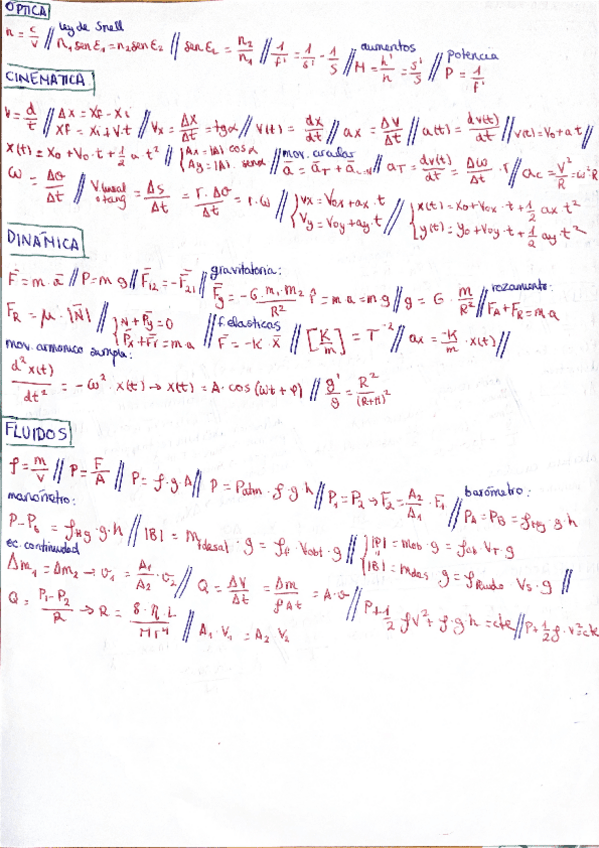 ÓPTICA
n = c/v // ley de Snell n₁ sen ε₁ = n₂ sen ε₂ // sen εL = n₂/n₁ // 1/f' = 1/s' - 1/s // aumentos M = h'/h = s'/s // potencia P = 1/f'
CINEMÁTICA
v = d/t // Δx = xf - xi xf = xi + v·t // vx = Δx/Δt = tgα // v(t) = dx/dt // ax = Δv/Δt // a(t) = dv(t)/dt // v(t) = v₀ + a t //
x(t) = x₀ + v₀·t + 1/2 a·t² // { Ax = |A| cos α Ay = |A|· sen α // mov. circular a⃗ = a⃗T + a⃗ // aT = dv(t)/dt = Δω/Δt · r // ac = v²/R = ω²R
ω = Δθ/Δt // v lineal o tang = Δs/Δt = r·Δθ/Δt = r·ω // { vx = v₀x + ax·t vy = v₀y + ay·t // { x(t) = x₀ + v₀x·t + 1/2 ax t² y(t) = y₀ + v₀y·t + 1/2 ay t²
DINÁMICA
F⃗ = m·a⃗ // P = m g // F⃗₁₂ = -F⃗₂₁ // gravitatoria: F⃗g = -G·m₁·m₂/R² r̂ = m a = m g // g = G·m/R² // rozamiento: FA + FR = m·a
F⃗R = μ·|N⃗| // { N + Py = 0 Px + Fr = m·a // f. elásticas F⃗ = -K·x⃗ // [K/m] = T⁻² // ax = -K/m · x(t) //
mov. armónico simple:
d²x(t)/dt² = -ω²·x(t) → x(t) = A·cos(ωt + φ) // g'/g = R²/(R+H)²
FLUIDOS
ρ = m/V // P = F/A // P = ρ·g·h // P = Patm·ρ·g·h // P₁ = P₂ → F⃗₂ = A₂/A₁ · F⃗₁ // barómetro: PA = PB = ρHg·g·h
manómetro:
P - P₀ = ρHg·g·h // |B| = m fdesal · g = ρf · Vobt · g // { |P| = mob · g = ρob VT·g |B| = mdes · g = ρfluido VS·g //
ec. continuidad
Δm₁ = Δm₂ → v₁ = A₁/A₂ · v₂ // Q = ΔV/Δt = Δm/ρΔt = A·v // P + 1/2 ρv² + ρ·g·h = cte // P + 1/2 ρ·v² = cte
Q = P₁-P₂/R → R = 8·η·L/πr⁴ // A₁·V₁ = A₂·V₂